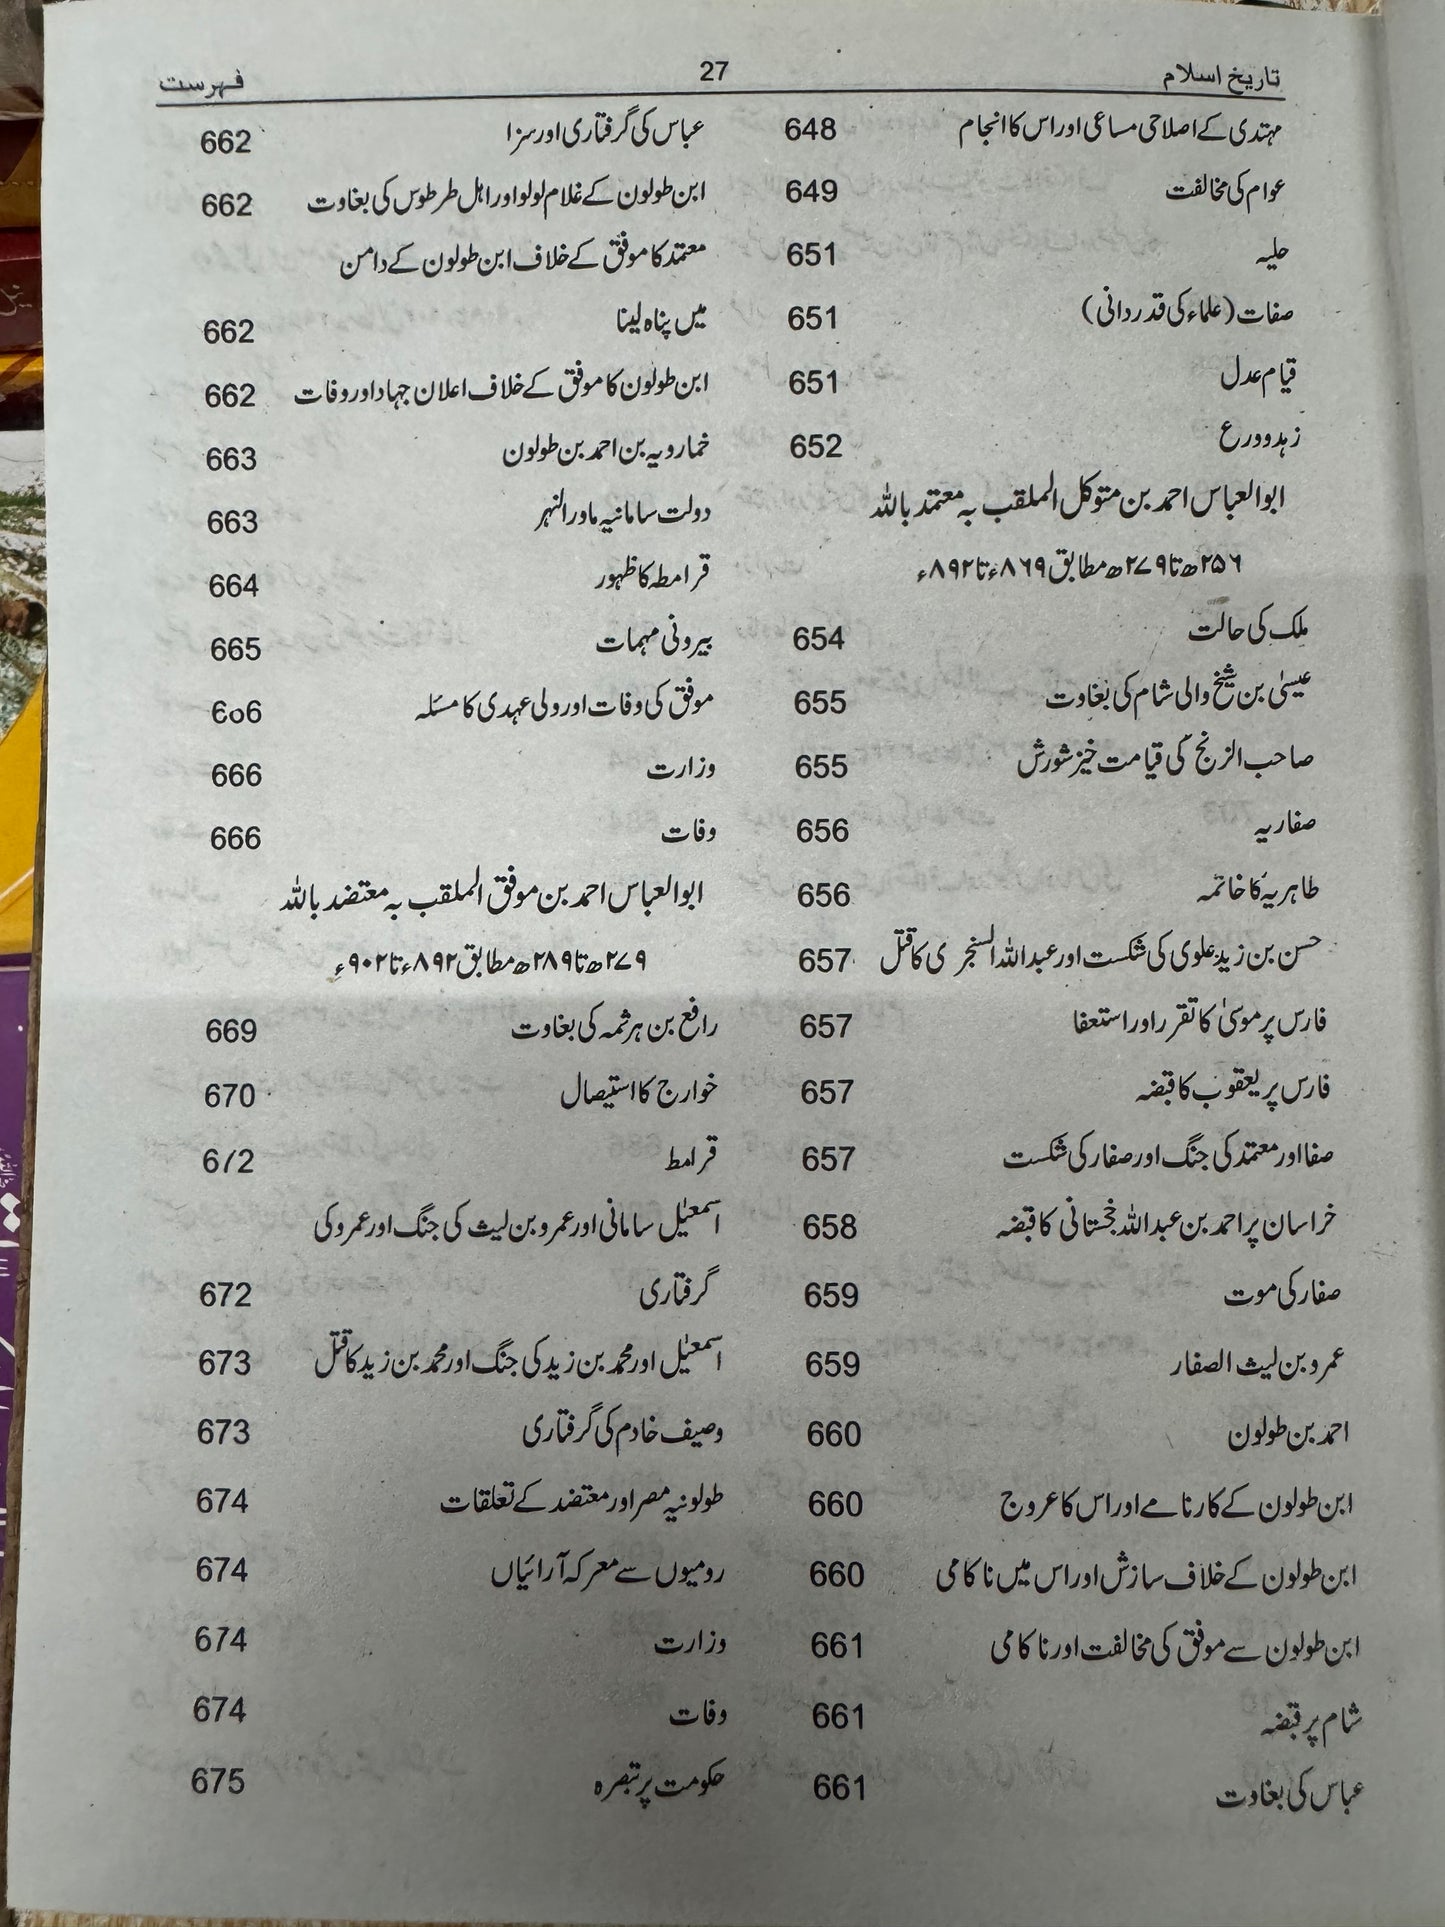 تاریخ اسلام
27
فہرست
مہتدی کے اصلاحی مساعی اور اس کا انجام 648
عوام کی مخالفت 649
حلیہ 651
صفات (علماء کی قدردانی) 651
قیام عدل 651
زہد و ورع 652
ابوالعباس احمد بن متوکل الملقب بہ معتمد باللہ
۲۵۶ھ تا ۲۷۹ھ مطابق ۸۶۹ء تا ۸۹۲ء
ملک کی حالت 654
عیسیٰ بن شیخ والی شام کی بغاوت 655
صاحب الزنج کی قیامت خیز شورش 655
صفاریہ 656
طاہریہ کا خاتمہ 656
حسن بن زید علوی کی شکست اور عبداللہ السنجری کا قتل 657
فارس پر موسیٰ کا تقرر اور استعفا 657
فارس پر یعقوب کا قبضہ 657
صفا اور معتمد کی جنگ اور صفار کی شکست 657
خراسان پر احمد بن عبداللہ خجستانی کا قبضہ 658
صفار کی موت 659
عمرو بن لیث الصفار 659
احمد بن طولون 660
ابن طولون کے کارنامے اور اس کا عروج 660
ابن طولون کے خلاف سازش اور اس میں ناکامی 660
ابن طولون سے موفق کی مخالفت اور ناکامی 661
شام پر قبضہ 661
عباس کی بغاوت 661
عباس کی گرفتاری اور سزا 662
ابن طولون کے غلام لولو اور اہل طرطوس کی بغاوت 662
معتمد کا موفق کے خلاف ابن طولون کے دامن
میں پناہ لینا 662
ابن طولون کا موفق کے خلاف اعلان جہاد اور وفات 662
خمارویہ بن احمد بن طولون 663
دولت سامانیہ ماورالنہر 663
قرامطہ کا ظہور 664
بیرونی مہمات 665
موفق کی وفات اور ولی عہدی کا مسئلہ 6o6
وزارت 666
وفات 666
ابوالعباس احمد بن موفق الملقب بہ معتضد باللہ
۲۷۹ھ تا ۲۸۹ھ مطابق ۸۹۲ء تا ۹۰۲ء
رافع بن ہرثمہ کی بغاوت 669
خوارج کا استیصال 670
قرامط 6/2
اسمعیٰل سامانی اور عمرو بن لیث کی جنگ اور عمرو کی
گرفتاری 672
اسمعیٰل اور محمد بن زید کی جنگ اور محمد بن زید کا قتل 673
وصیف خادم کی گرفتاری 673
طولونیہ مصر اور معتضد کے تعلقات 674
رومیوں سے معرکہ آرائیاں 674
وزارت 674
وفات 674
حکومت پر تبصرہ 675